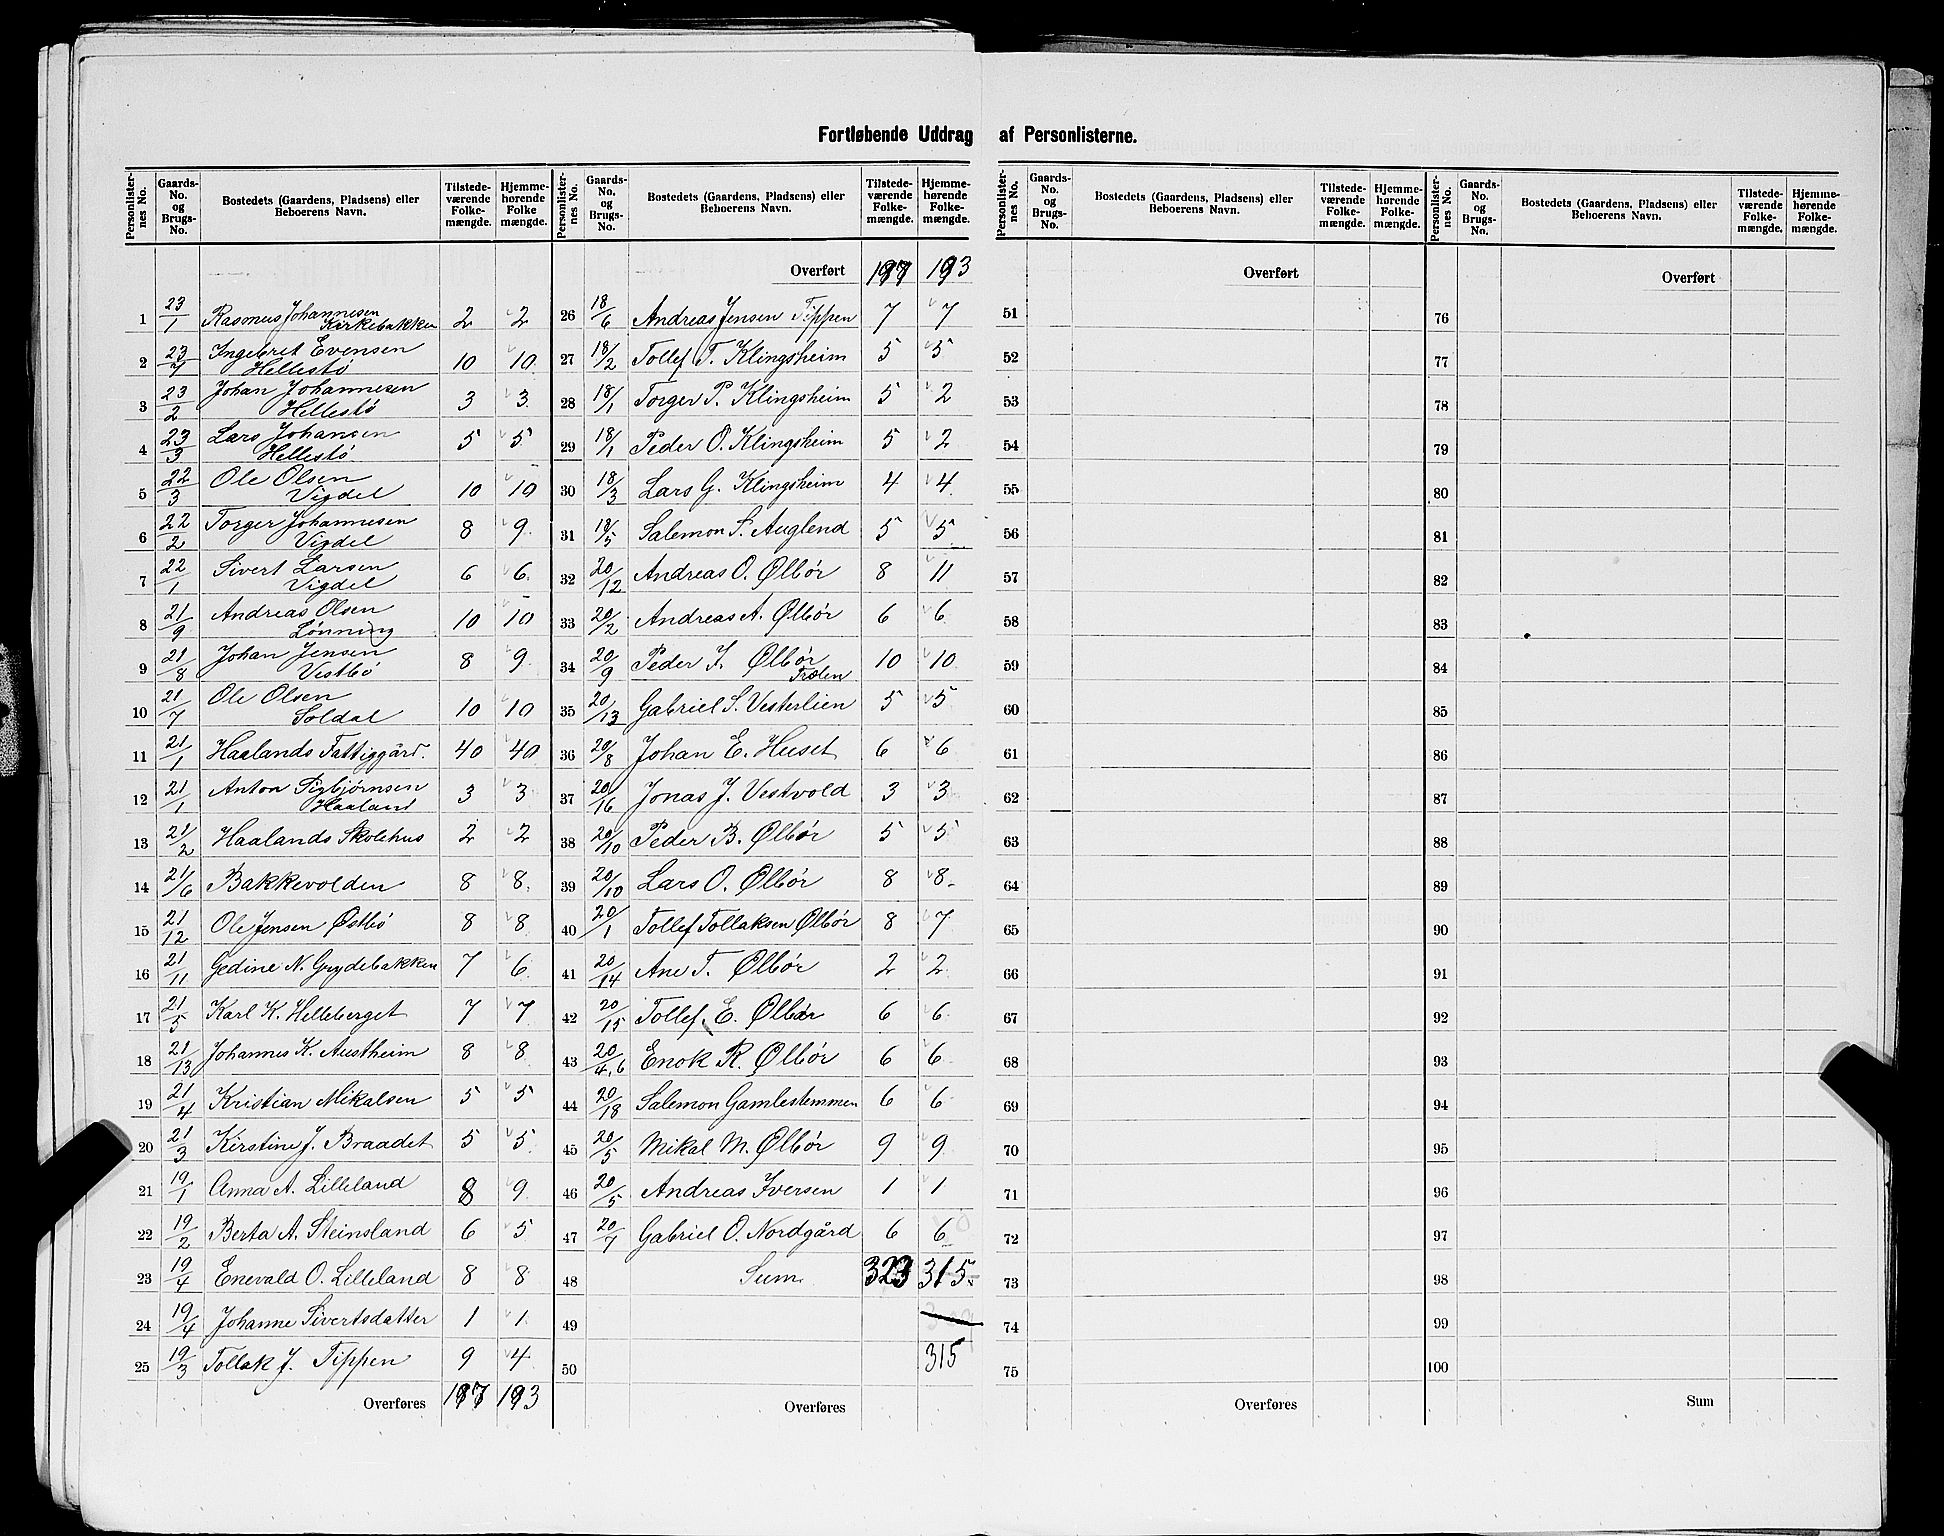 Fortløbende Uddrag af Personlisterne.
Personlister-nes No. | Gaards-No. og Brugs-No. | Bostedets (Gaardens, Pladsens) eller Beboerens Navn. | Tilstede-værende Folke-mængde. | Hjemme-hørende Folke mængde.
1 23/1 Rasmus Johannesen Kirkebakken 2 2
2 23/7 Ingebret Evensen Hellestø 10 10
3 23/2 Johan Johannesen Hellestø 3 3
4 23/3 Lars Johansen Hellestø 5 5
5 22/3 Ole Olsen Vigdel 10 10
6 22/2 Torger Johannesen Vigdel 8 9
7 22/1 Sivert Larsen Vigdel 6 6
8 21/9 Andreas Olsen Lønning 10 10
9 21/8 Johan Jensen Vestbø 8 9
10 21/7 Ole Olsen Soldal 10 10
11 21/1 Haalands Fattiggård. 40 40
12 21/1 Anton Sigbjørnsen Haaland 3 3
13 21/2 Haalands Skolehus 2 2
14 21/6 Bakkevolden 8 8
15 21/12 Ole Jensen Østbø 8 8
16 21/11 Gedine N. Grydebakken 7 6
17 21/5 Karl K. Helleberget 7 7
18 21/13 Johannes K. Austheim 8 8
19 21/4 Kristian Mikalsen 5 5
20 21/3 Kirstine J. Braadet 5 5
21 19/1 Anna A. Lilleland 8 9
22 19/2 Berta A. Steinsland 6 5
23 19/4 Enevald O. Lilleland 8 8
24 19/4 Johanne Sivertsdatter 1 1
25 19/3 Tollak J. Tippen 9 4
Overføres 193
Personlister-nes No. | Gaards-No. og Brugs-No. | Bostedets (Gaardens, Pladsens) eller Beboerens Navn. | Tilstede-værende Folke-mængde. | Hjemme-hørende Folke-mængde.
Overført 193
26 18/6 Andreas Jensen Tippen 7 7
27 18/2 Tollef T. Klingsheim 5 5
28 18/1 Torger P. Klingsheim 5 2
29 18/1 Peder O. Klingsheim 5 2
30 18/3 Lars G. Klingsheim 4 4
31 18/5 Salemon S. Auglend 5 5
32 20/12 Andreas O. Ølbør 8 11
33 20/2 Andreas A. Ølbør 6 6
34 20/9 Peder J. Ølbør 10 10
35 20/13 Gabriel S. Vesterlien 5 5
36 20/8 Johan E. Huset 6 6
37 20/16 Jonas J. Vestvold 3 3
38 20/10 Peder B. Ølbør 5 5
39 20/10 Lars O. Ølbør 8 8
40 20/1 Tollef Tollaksen Ølbør 8 7
41 20/14 Ane T. Ølbør 2 2
42 20/15 Tollef E. Ølbør 6 6
43 20/4,6 Enok R. Ølbør 6 6
44 20/18 Salemon Gamlestemmen 6 6
45 20/5 Mikal M. Ølbør 9 9
46 20/5 Andreas Iversen 1 1
47 20/7 Gabriel O. Nordgård 6 6
48 Sum 323 315
49
50 315
Overføres
Personlister-nes No. | Gaards-No. og Brugs-No. | Bostedets (Gaardens, Pladsens) eller Beboerens Navn. | Tilstede-værende Folke-mængde. | Hjemme-hørende Folke-mængde.
Overført
51
52
53
54
55
56
57
58
59
60
61
62
63
64
65
66
67
68
69
70
71
72
73
74
75
Overføres
Personlister-nes No. | Gaards-No. og Brugs-No. | Bostedets (Gaardens, Pladsens) eller Beboerens Navn. | Tilstede-værende Folke-mængde. | Hjemme-hørende Folke-mængde.
Overført
76
77
78
79
80
81
82
83
84
85
86
87
88
89
90
91
92
93
94
95
96
97
98
99
100
Sum